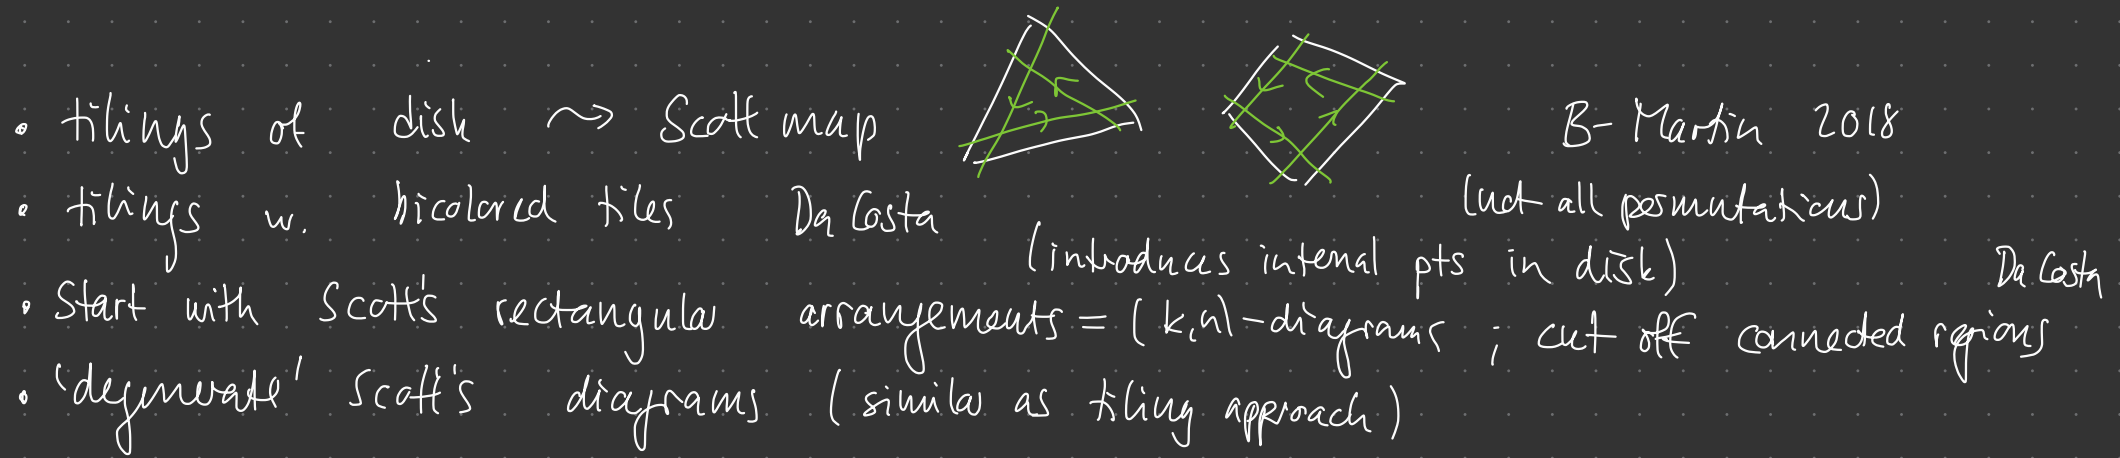 • tilings of disk ⤳ Scott map B-Martin 2018
(not all permutations)
• tilings w. bicolored tiles Da Costa
(introduces internal pts in disk)
Da Costa
• Start with Scott's rectangular arrangements = (k,n)-diagrams ; cut off connected regions
• 'degenerate' Scott's diagrams (similar as tiling approach)